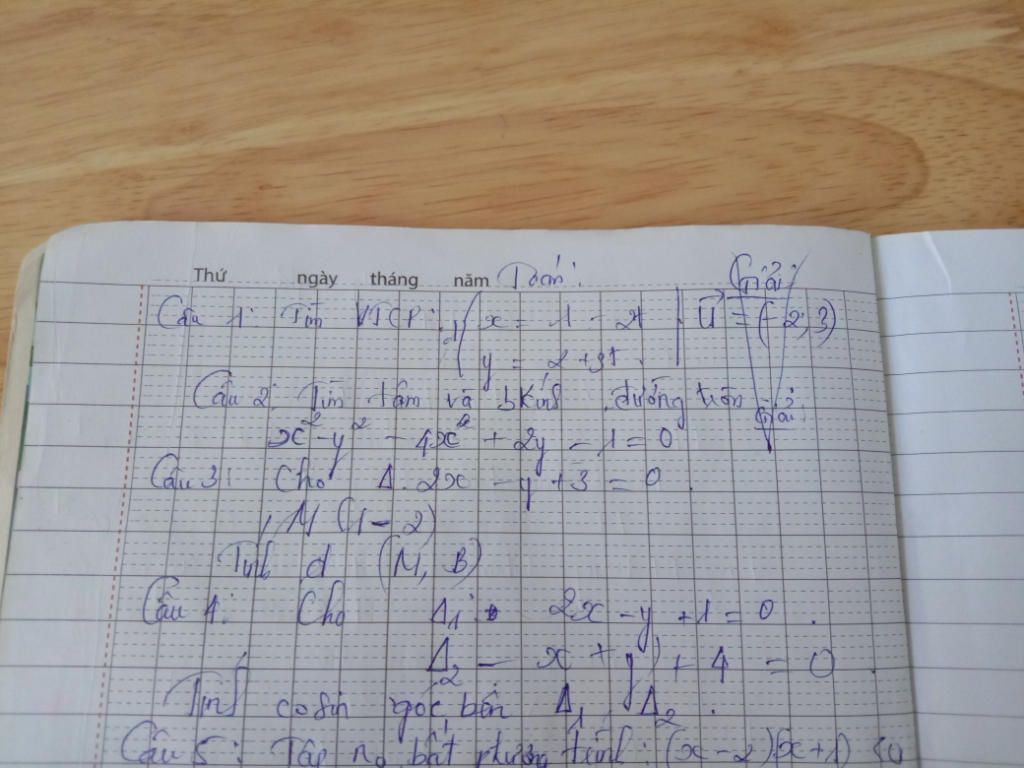 Thứ ngày tháng năm Toán: Giải:
Câu 1: Tìm VTCP: d { x = 1 - 2t | u⃗ = (-2; 3)
y = 2 + 3t.
Câu 2: Tìm tâm và bkính đường tròn Giải:
x² - y² - 4x² + 2y - 1 = 0
Câu 3: Cho Δ. 2x - y + 3 = 0.
M (1 - 2)
Tính d (M, B)
Câu 4: Cho Δ₁: 2x - y + 1 = 0.
Δ₂ - x + y + 4 = 0.
Tính cosin góc bên Δ₁, Δ₂.
Câu 5: Tập no bất phương trình: (x - 2)(x + 1) ≤ 0